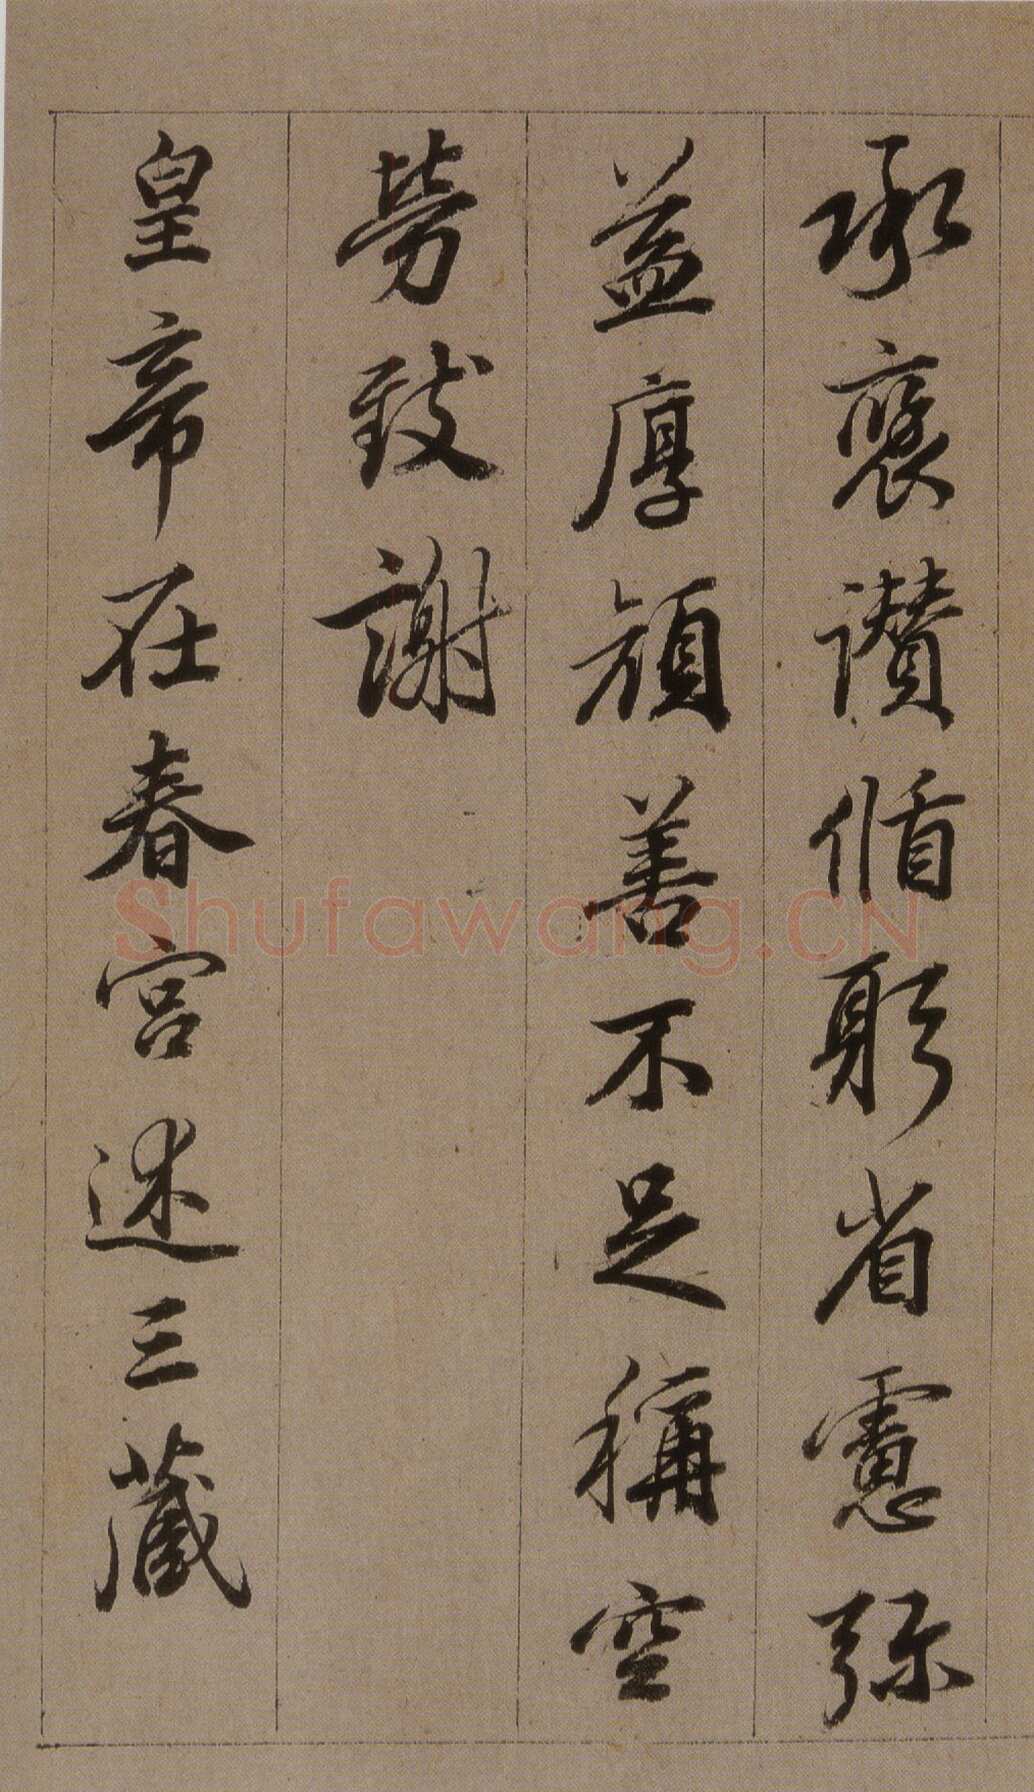 承褒讃循躬省慮弥
益厚顔善不足稱空
勞致謝
皇帝在春宮述三藏
Shufawang.CN